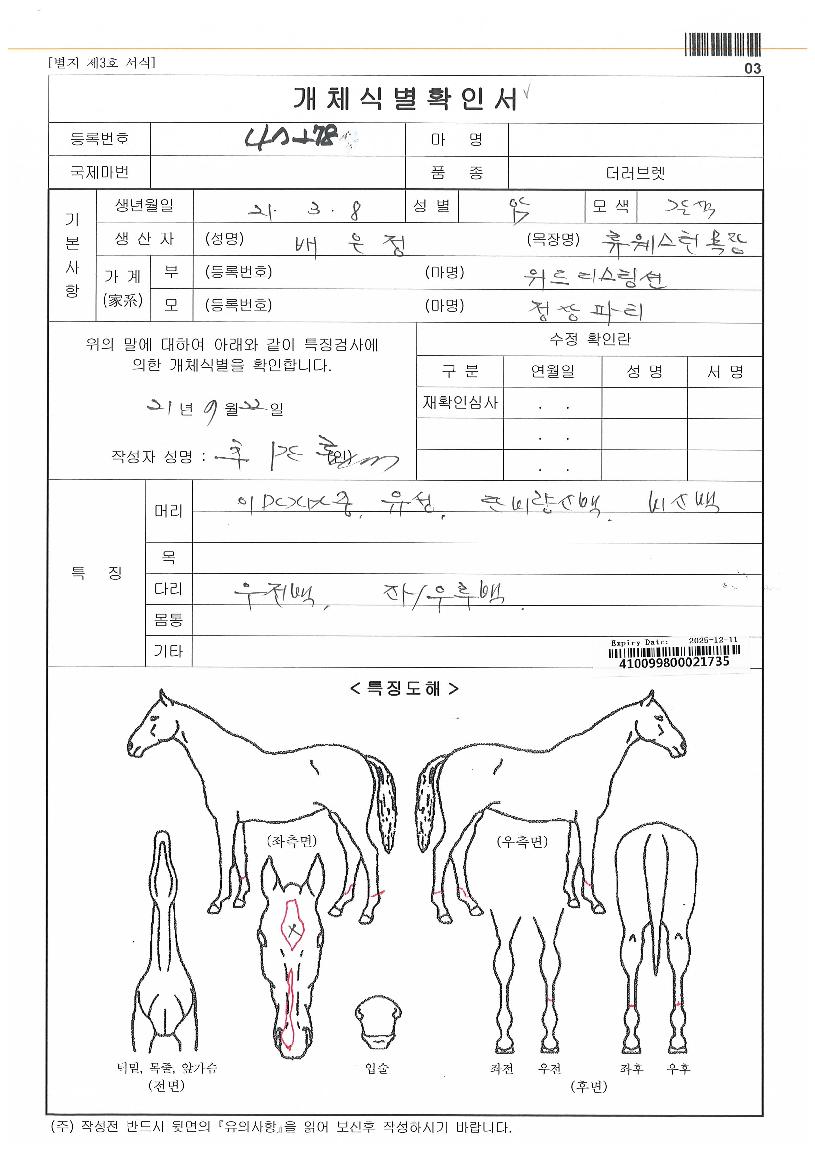 [별지 제3호 서식]
03
개체식별확인서
등록번호 마 명
국제마번 품 종 더러브렛
기본사항
생년월일 21. 3. 8 성 별 암 모 색 갈색
생 산 사 (성명) 배 은 정 (목장명) 류웨스턴목장
가 계 (家系) 부 (등록번호) (마명) 위드디스링션
모 (등록번호) (마명) 정상파티
위의 말에 대하여 아래와 같이 특징검사에
의한 개체식별을 확인합니다.
21년 9월 22일
작성자 성명 : (인)
수정 확인란
구 분 연월일 성 명 서 명
재확인심사 . .
. .
. .
특 징
머리 유성, 비소백
목
다리 우전백, 좌/우후백.
몸통
기타
Expiry Date: 2025-12-11
410099800021735
< 특징도해 >
(좌측면) (우측면)
턱밑, 목줄, 앞가슴
(전면)
입술
좌전 우전 좌후 우후
(후면)
(주) 작성전 반드시 뒷면의 『유의사항』을 읽어 보신후 작성하시기 바랍니다.